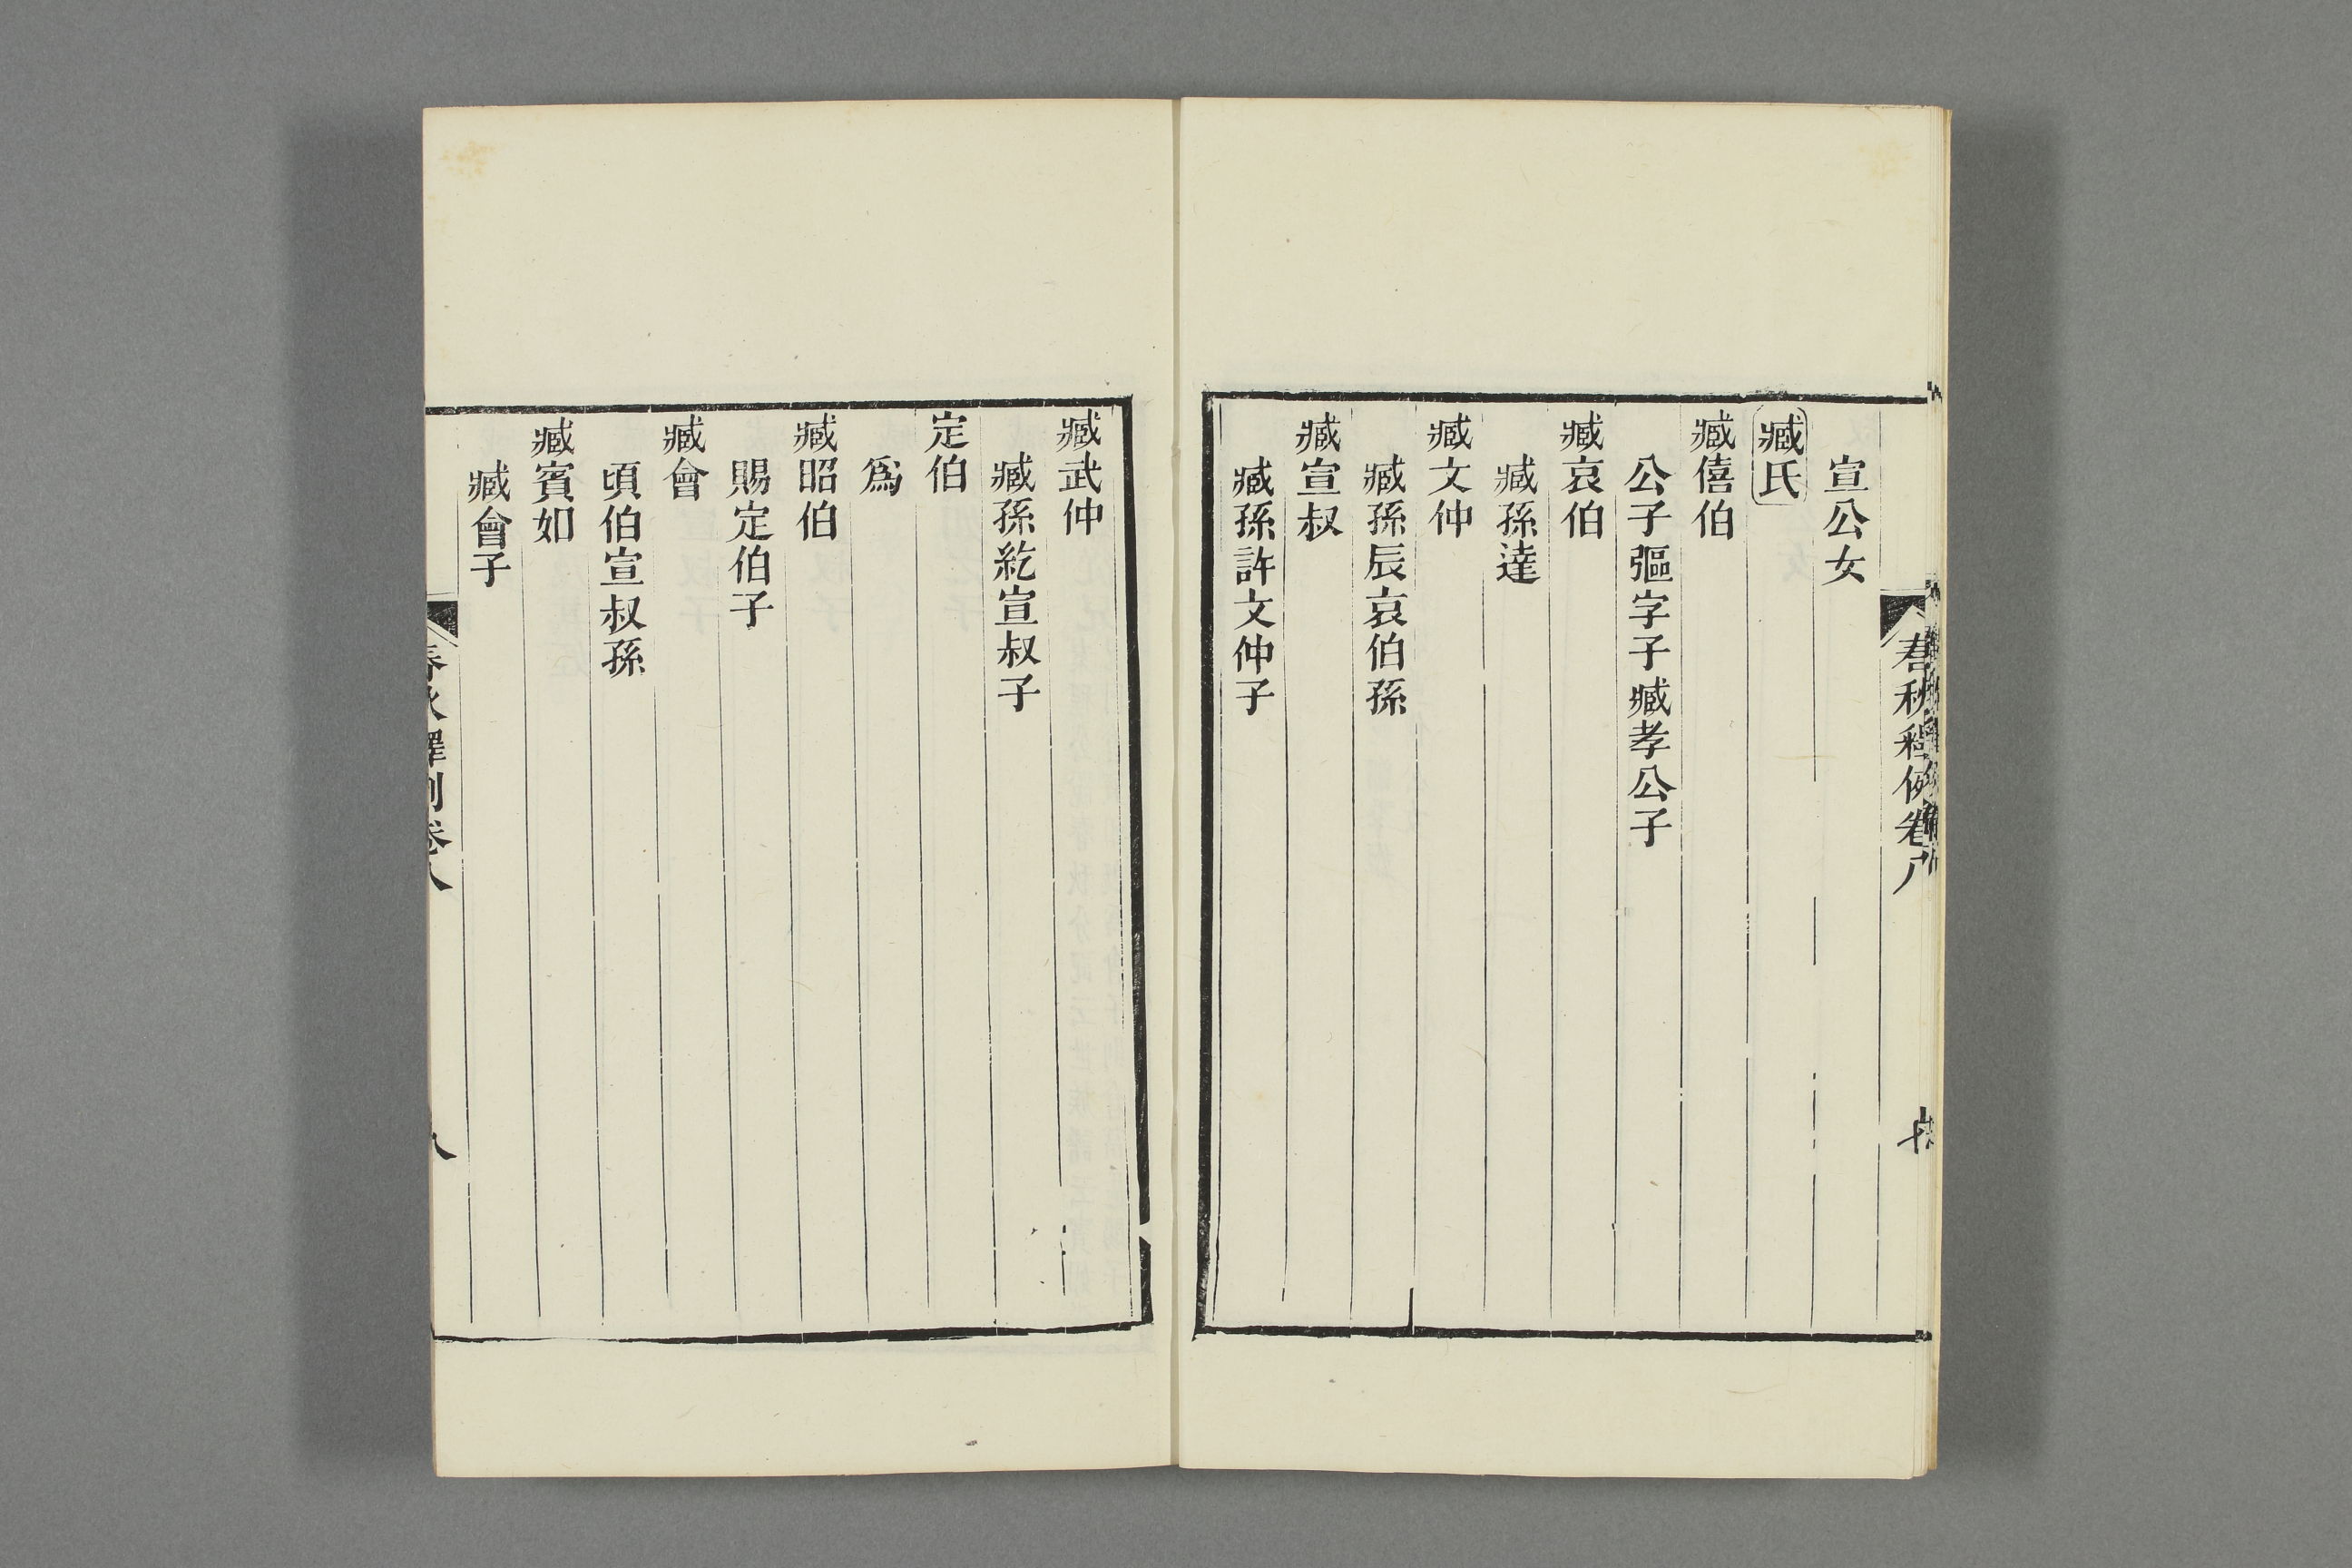 宣公女
臧氏
臧僖伯
公子彄字子臧孝公子
臧哀伯
臧孫達
臧文仲
臧孫辰哀伯孫
臧宣叔
臧孫許文仲子
臧武仲
臧孫紇宣叔子
定伯
爲
臧昭伯
賜定伯子
臧會
頃伯宣叔孫
臧賓如
臧會子
春秋釋例卷八
八